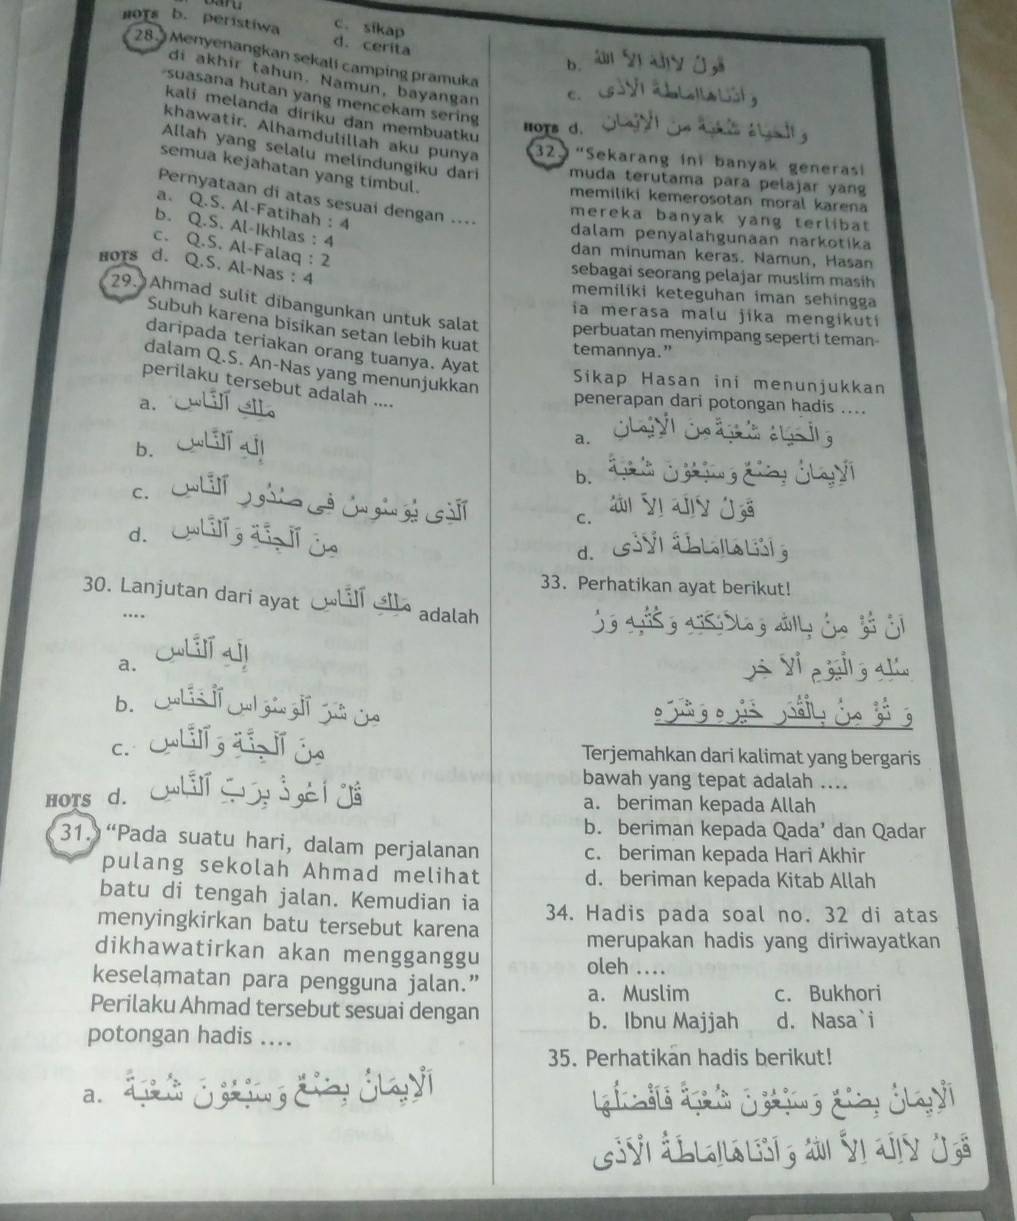 baru
b. peristiwa
c. sikap
d. cerita
HOTS
28. Menyenangkan sekali camping pramuka
di akhir tahun. Namun, bayangan
suasana hutan yang mencekam sering
kali melanda diriku dan membuatku
khawatir. Alhamdulillah aku punya
Allah yang selalu melindungiku dari
semua kejahatan yang timbul.
Pernyataan di atas sesuai dengan ....
a. Q.S. Al-Fatihah : 4
b. Q.S. Al-Ikhlas : 4
c. Q.S. Al-Falaq : 2
d. Q.S. Al-Nas : 4
HOTS
29. Ahmad sulit dibangunkan untuk salat
Subuh karena bisikan setan lebih kuat
daripada teriakan orang tuanya. Ayat
dalam Q.S. An-Nas yang menunjukkan
perilaku tersebut adalah ....
a. مَلِكِ ٱلنَّاسِ
b. إِلَٰهِ ٱلنَّاسِ
c. ٱلَّذِى يُوَسْوِسُ فِى صُدُورِ ٱلنَّاسِ
d. مِنَ ٱلْجِنَّةِ وَٱلنَّاسِ
30. Lanjutan dari ayat مَلِكِ ٱلنَّاسِ adalah
....
a. إِلَٰهِ ٱلنَّاسِ
b. مِن شَرِّ ٱلْوَسْوَاسِ ٱلْخَنَّاسِ
c. مِنَ ٱلْجِنَّةِ وَٱلنَّاسِ
d. قُلْ أَعُوذُ بِرَبِّ ٱلنَّاسِ
HOTS
31. “Pada suatu hari, dalam perjalanan
pulang sekolah Ahmad melihat
batu di tengah jalan. Kemudian ia
menyingkirkan batu tersebut karena
dikhawatirkan akan mengganggu
keselamatan para pengguna jalan.”
Perilaku Ahmad tersebut sesuai dengan
potongan hadis ....
a. اَلْإِيْمَانُ بِضْعٌ وَسَبْعُوْنَ شُعْبَةً
b. قَوْلُ لَاإِلَهَ إِلَّا اللهُ
c. وَأَدْنَاهَاإِمَاطَةُ الْأَذَى
d. وَالْحَيَاءُ شُعْبَةٌ مِنَ الْإِيْمَانِ
HOTS
32. “Sekarang ini banyak generasi
muda terutama para pelajar yang
memiliki kemerosotan moral karena
mereka banyak yang terlibat
dalam penyalahgunaan narkotika
dan minuman keras. Namun, Hasan
sebagai seorang pelajar muslim masih
memiliki keteguhan iman sehingga
ia merasa malu jika mengikuti
perbuatan menyimpang seperti teman-
temannya.”
Sikap Hasan ini menunjukkan
penerapan dari potongan hadis ....
a. وَالْحَيَاءُ شُعْبَةٌ مِنَ الْإِيْمَانِ
b. اَلْإِيْمَانُ بِضْعٌ وَسَبْعُوْنَ شُعْبَةً
c. قَوْلُ لَاإِلَهَ إِلَّا اللهُ
d. وَأَدْنَاهَاإِمَاطَةُ الْأَذَى
33. Perhatikan ayat berikut!
أَنْ تُؤْ مِنَ بِاللهِ وَمَلَائِكَتِهِ وَكُتُبِهِ وَرُ
سُلِهِ وَالْيَوْمِ الْأَ خِرِ
وَ تُؤْ مِنَ بِالْقَدْرِ خَيْرِهِ وَشَرِّهِ
Terjemahkan dari kalimat yang bergaris
bawah yang tepat adalah ....
a. beriman kepada Allah
b. beriman kepada Qada’ dan Qadar
c. beriman kepada Hari Akhir
d. beriman kepada Kitab Allah
34. Hadis pada soal no. 32 di atas
merupakan hadis yang diriwayatkan
oleh ....
a. Muslim
b. Ibnu Majjah
c. Bukhori
d. Nasa`i
35. Perhatikan hadis berikut!
اَلْإِيْمَانُ بِضْعٌ وَسَبْعُوْنَ شُعْبَةً فَأَفْضَلُهَا
قَوْلُ لَاإِلَهَ إِلَّا اللهُ وَأَدْنَاهَاإِمَاطَةُ الْأَذَى